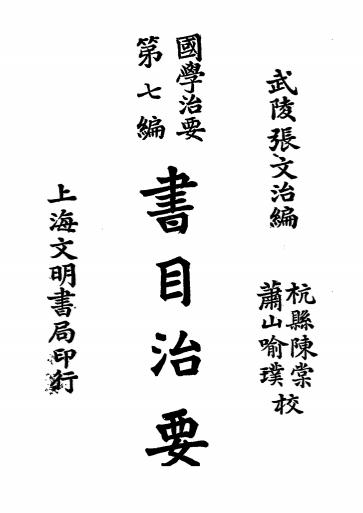 武陵張文治編
杭縣陳棠
蕭山喻璞
校
國學治要
第七編
書目治要
上海文明書局印行